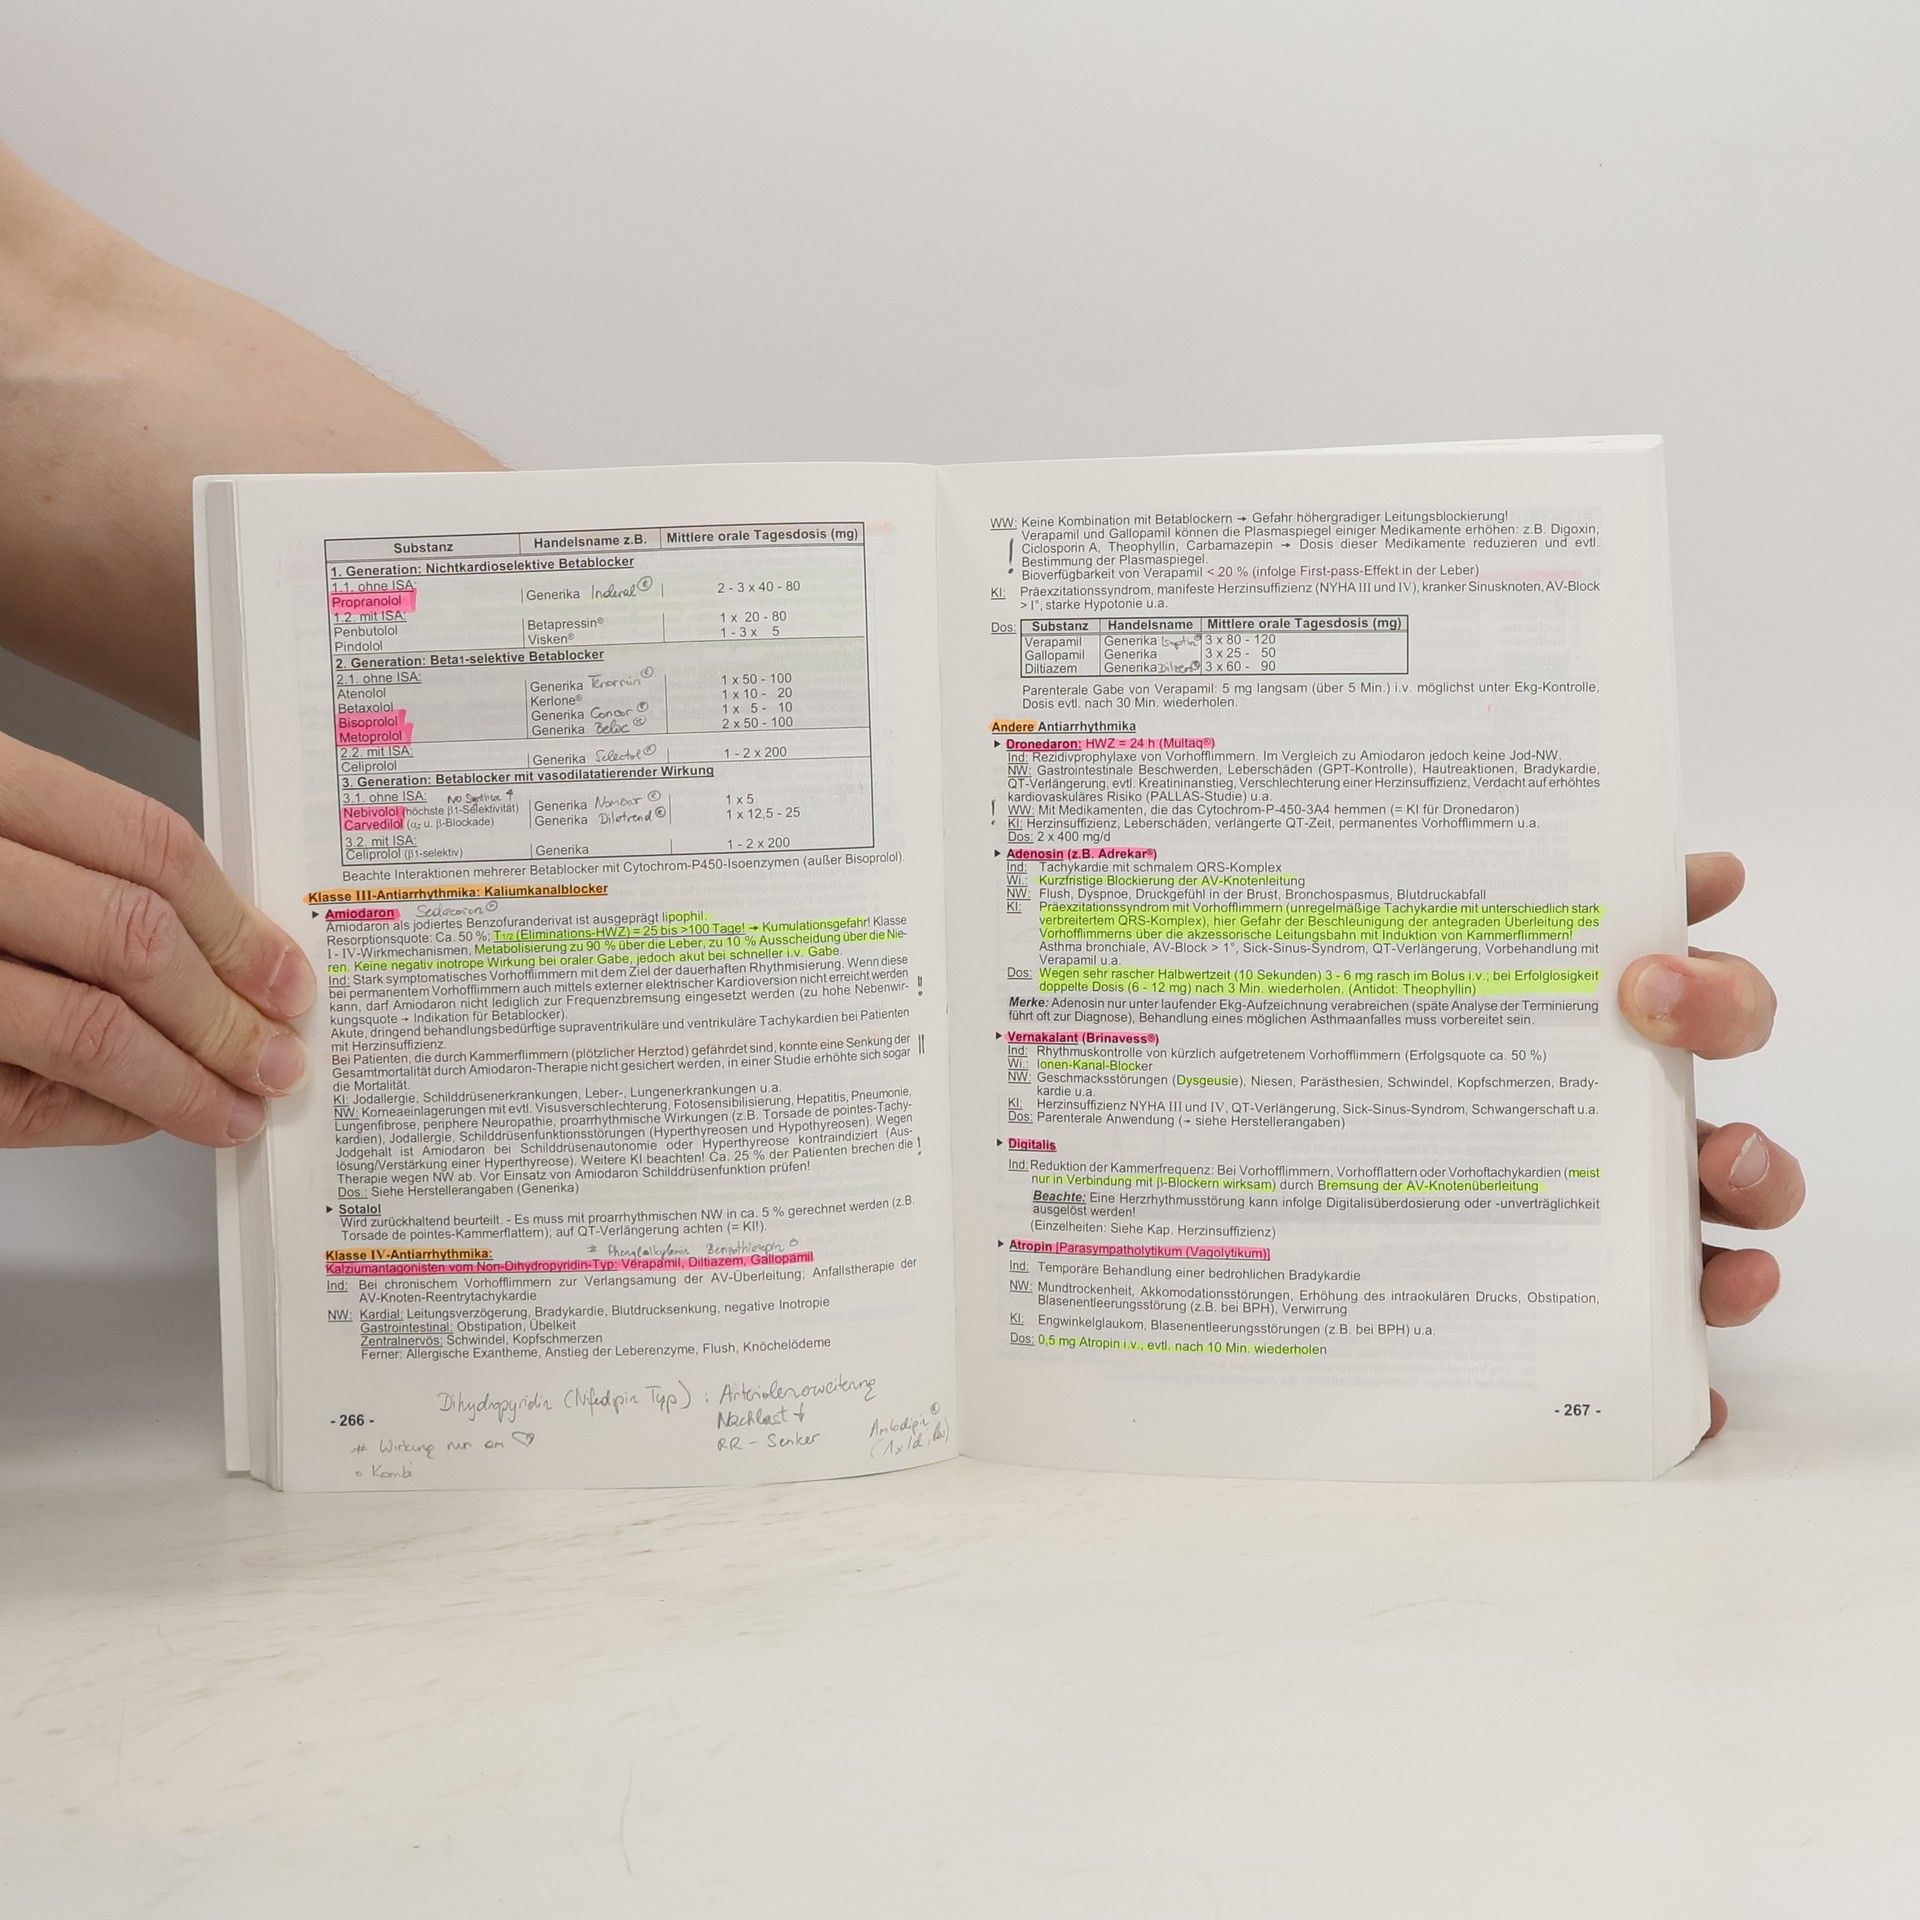 Substanz Handelsname z.B. Mittlere orale Tagesdosis (mg)
1. Generation: Nichtkardioselektive Betablocker
1.1. ohne ISA:
Propranolol Generika Inderal® 2 - 3 x 40 - 80
1.2. mit ISA:
Penbutolol Betapressin® 1 x 20 - 80
Pindolol Visken® 1 - 3 x 5
2. Generation: Beta1-selektive Betablocker
2.1. ohne ISA:
Atenolol Generika Tenormin® 1 x 50 - 100
Betaxolol Kerlone® 1 x 10 - 20
Bisoprolol Generika Concor® 1 x 5 - 10
Metoprolol Generika Beloc® 2 x 50 - 100
2.2. mit ISA:
Celiprolol Generika Selectol® 1 - 2 x 200
3. Generation: Betablocker mit vasodilatatierender Wirkung
3.1. ohne ISA: NO Synthese ↑
Nebivolol (höchste β1-Selektivität) Generika Nomexor® 1 x 5
Carvedilol (α₁ u. β-Blockade) Generika Dilatrend® 1 x 12,5 - 25
3.2. mit ISA:
Celiprolol (β1-selektiv) Generika 1 - 2 x 200
Beachte Interaktionen mehrerer Betablocker mit Cytochrom-P450-Isoenzymen (außer Bisoprolol).
Klasse III-Antiarrhythmika: Kaliumkanalblocker
▶ Amiodaron Sedacoron®
Amiodaron als jodiertes Benzofuranderivat ist ausgeprägt lipophil.
Resorptionsquote: Ca. 50 %; T1/2 (Eliminations-HWZ) = 25 bis >100 Tage! → Kumulationsgefahr! Klasse
I - IV-Wirkmechanismen, Metabolisierung zu 90 % über die Leber, zu 10 % Ausscheidung über die Nie-
ren. Keine negativ inotrope Wirkung bei oraler Gabe, jedoch akut bei schneller i.v. Gabe.
Ind: Stark symptomatisches Vorhofflimmern mit dem Ziel der dauerhaften Rhythmisierung. Wenn diese
bei permanentem Vorhofflimmern auch mittels externer elektrischer Kardioversion nicht erreicht werden
kann, darf Amiodaron nicht lediglich zur Frequenzbremsung eingesetzt werden (zu hohe Nebenwir-
kungsquote → Indikation für Betablocker).
Akute, dringend behandlungsbedürftige supraventrikuläre und ventrikuläre Tachykardien bei Patienten
mit Herzinsuffizienz.
Bei Patienten, die durch Kammerflimmern (plötzlicher Herztod) gefährdet sind, konnte eine Senkung der
Gesamtmortalität durch Amiodaron-Therapie nicht gesichert werden, in einer Studie erhöhte sich sogar
die Mortalität.
KI: Jodallergie, Schilddrüsenerkrankungen, Leber-, Lungenerkrankungen u.a.
NW: Korneaeinlagerungen mit evtl. Visusverschlechterung, Fotosensibilisierung, Hepatitis, Pneumonie,
Lungenfibrose, periphere Neuropathie, proarrhythmische Wirkungen (z.B. Torsade de pointes-Tachy-
kardien), Jodallergie, Schilddrüsenfunktionsstörungen (Hyperthyreosen und Hypothyreosen). Wegen
Jodgehalt ist Amiodaron bei Schilddrüsenautonomie oder Hyperthyreose kontraindiziert (Aus-
lösung/Verstärkung einer Hyperthyreose). Weitere KI beachten! Ca. 25 % der Patienten brechen die
Therapie wegen NW ab. Vor Einsatz von Amiodaron Schilddrüsenfunktion prüfen!
Dos.: Siehe Herstellerangaben (Generika)
▶ Sotalol
Wird zurückhaltend beurteilt. - Es muss mit proarrhythmischen NW in ca. 5 % gerechnet werden (z.B.
Torsade de pointes-Kammerflattern), auf QT-Verlängerung achten (= KI!).
Klasse IV-Antiarrhythmika: # Phenylalkylamin Benzothiazepin o
Kalziumantagonisten vom Non-Dihydropyridin-Typ: Verapamil, Diltiazem, Gallopamil
Ind: Bei chronischem Vorhofflimmern zur Verlangsamung der AV-Überleitung; Anfallstherapie der
AV-Knoten-Reentrytachykardie
NW: Kardial: Leitungsverzögerung, Bradykardie, Blutdrucksenkung, negative Inotropie
Gastrointestinal: Obstipation, Übelkeit
Zentralnervös: Schwindel, Kopfschmerzen
Ferner: Allergische Exantheme, Anstieg der Leberenzyme, Flush, Knöchelödeme
Dihydropyridin (Nifedipin Typ) : Arteriolenerweiterung
Nachlast ↓
RR - Senker
Amlodipin®
(1x/d,
- 266 -
# Wirkung nur am ♡
o Kombi
WW: Keine Kombination mit Betablockern → Gefahr höhergradiger Leitungsblockierung!
Verapamil und Gallopamil können die Plasmaspiegel einiger Medikamente erhöhen: z.B. Digoxin,
Ciclosporin A, Theophyllin, Carbamazepin → Dosis dieser Medikamente reduzieren und evtl.
Bestimmung der Plasmaspiegel.
Bioverfügbarkeit von Verapamil < 20 % (infolge First-pass-Effekt in der Leber)
KI: Präexzitationssyndrom, manifeste Herzinsuffizienz (NYHA III und IV), kranker Sinusknoten, AV-Block
> I°, starke Hypotonie u.a.
Dos: Substanz Handelsname Mittlere orale Tagesdosis (mg)
Verapamil Generika Isoptin® 3 x 80 - 120
Gallopamil Generika 3 x 25 - 50
Diltiazem Generika Dilzem® 3 x 60 - 90
Parenterale Gabe von Verapamil: 5 mg langsam (über 5 Min.) i.v. möglichst unter Ekg-Kontrolle,
Dosis evtl. nach 30 Min. wiederholen.
Andere Antiarrhythmika
▶ Dronedaron: HWZ = 24 h (Multaq®)
Ind: Rezidivprophylaxe von Vorhofflimmern. Im Vergleich zu Amiodaron jedoch keine Jod-NW.
NW: Gastrointestinale Beschwerden, Leberschäden (GPT-Kontrolle), Hautreaktionen, Bradykardie,
QT-Verlängerung, evtl. Kreatininanstieg, Verschlechterung einer Herzinsuffizienz, Verdacht auf erhöhtes
kardiovaskuläres Risiko (PALLAS-Studie) u.a.
WW: Mit Medikamenten, die das Cytochrom-P-450-3A4 hemmen (= KI für Dronedaron)
KI: Herzinsuffizienz, Leberschäden, verlängerte QT-Zeit, permanentes Vorhofflimmern u.a.
Dos: 2 x 400 mg/d
▶ Adenosin (z.B. Adrekar®)
Ind: Tachykardie mit schmalem QRS-Komplex
Wi.: Kurzfristige Blockierung der AV-Knotenleitung
NW: Flush, Dyspnoe, Druckgefühl in der Brust, Bronchospasmus, Blutdruckabfall
KI: Präexzitationssyndrom mit Vorhofflimmern (unregelmäßige Tachykardie mit unterschiedlich stark
verbreitertem QRS-Komplex), hier Gefahr der Beschleunigung der antegraden Überleitung des
Vorhofflimmerns über die akzessorische Leitungsbahn mit Induktion von Kammerflimmern!
Asthma bronchiale, AV-Block > 1°, Sick-Sinus-Syndrom, QT-Verlängerung, Vorbehandlung mit
Verapamil u.a.
Dos: Wegen sehr rascher Halbwertzeit (10 Sekunden) 3 - 6 mg rasch im Bolus i.v.; bei Erfolglosigkeit
doppelte Dosis (6 - 12 mg) nach 3 Min. wiederholen. (Antidot: Theophyllin)
Merke: Adenosin nur unter laufender Ekg-Aufzeichnung verabreichen (späte Analyse der Terminierung
führt oft zur Diagnose), Behandlung eines möglichen Asthmaanfalles muss vorbereitet sein.
▶ Vernakalant (Brinavess®)
Ind: Rhythmuskontrolle von kürzlich aufgetretenem Vorhofflimmern (Erfolgsquote ca. 50 %)
Wi.: Ionen-Kanal-Blocker
NW: Geschmacksstörungen (Dysgeusie), Niesen, Parästhesien, Schwindel, Kopfschmerzen, Brady-
kardie u.a.
KI: Herzinsuffizienz NYHA III und IV, QT-Verlängerung, Sick-Sinus-Syndrom, Schwangerschaft u.a.
Dos: Parenterale Anwendung (→ siehe Herstellerangaben)
▶ Digitalis
Ind: Reduktion der Kammerfrequenz: Bei Vorhofflimmern, Vorhofflattern oder Vorhoftachykardien (meist
nur in Verbindung mit β-Blockern wirksam) durch Bremsung der AV-Knotenüberleitung
Beachte: Eine Herzrhythmusstörung kann infolge Digitalisüberdosierung oder -unverträglichkeit
ausgelöst werden!
(Einzelheiten: Siehe Kap. Herzinsuffizienz)
▶ Atropin [Parasympatholytikum (Vagolytikum)]
Ind: Temporäre Behandlung einer bedrohlichen Bradykardie
NW: Mundtrockenheit, Akkomodationsstörungen, Erhöhung des intraokulären Drucks, Obstipation,
Blasenentleerungsstörung (z.B. bei BPH), Verwirrung
KI: Engwinkelglaukom, Blasenentleerungsstörungen (z.B. bei BPH) u.a.
Dos: 0,5 mg Atropin i.v., evtl. nach 10 Min. wiederholen
- 267 -